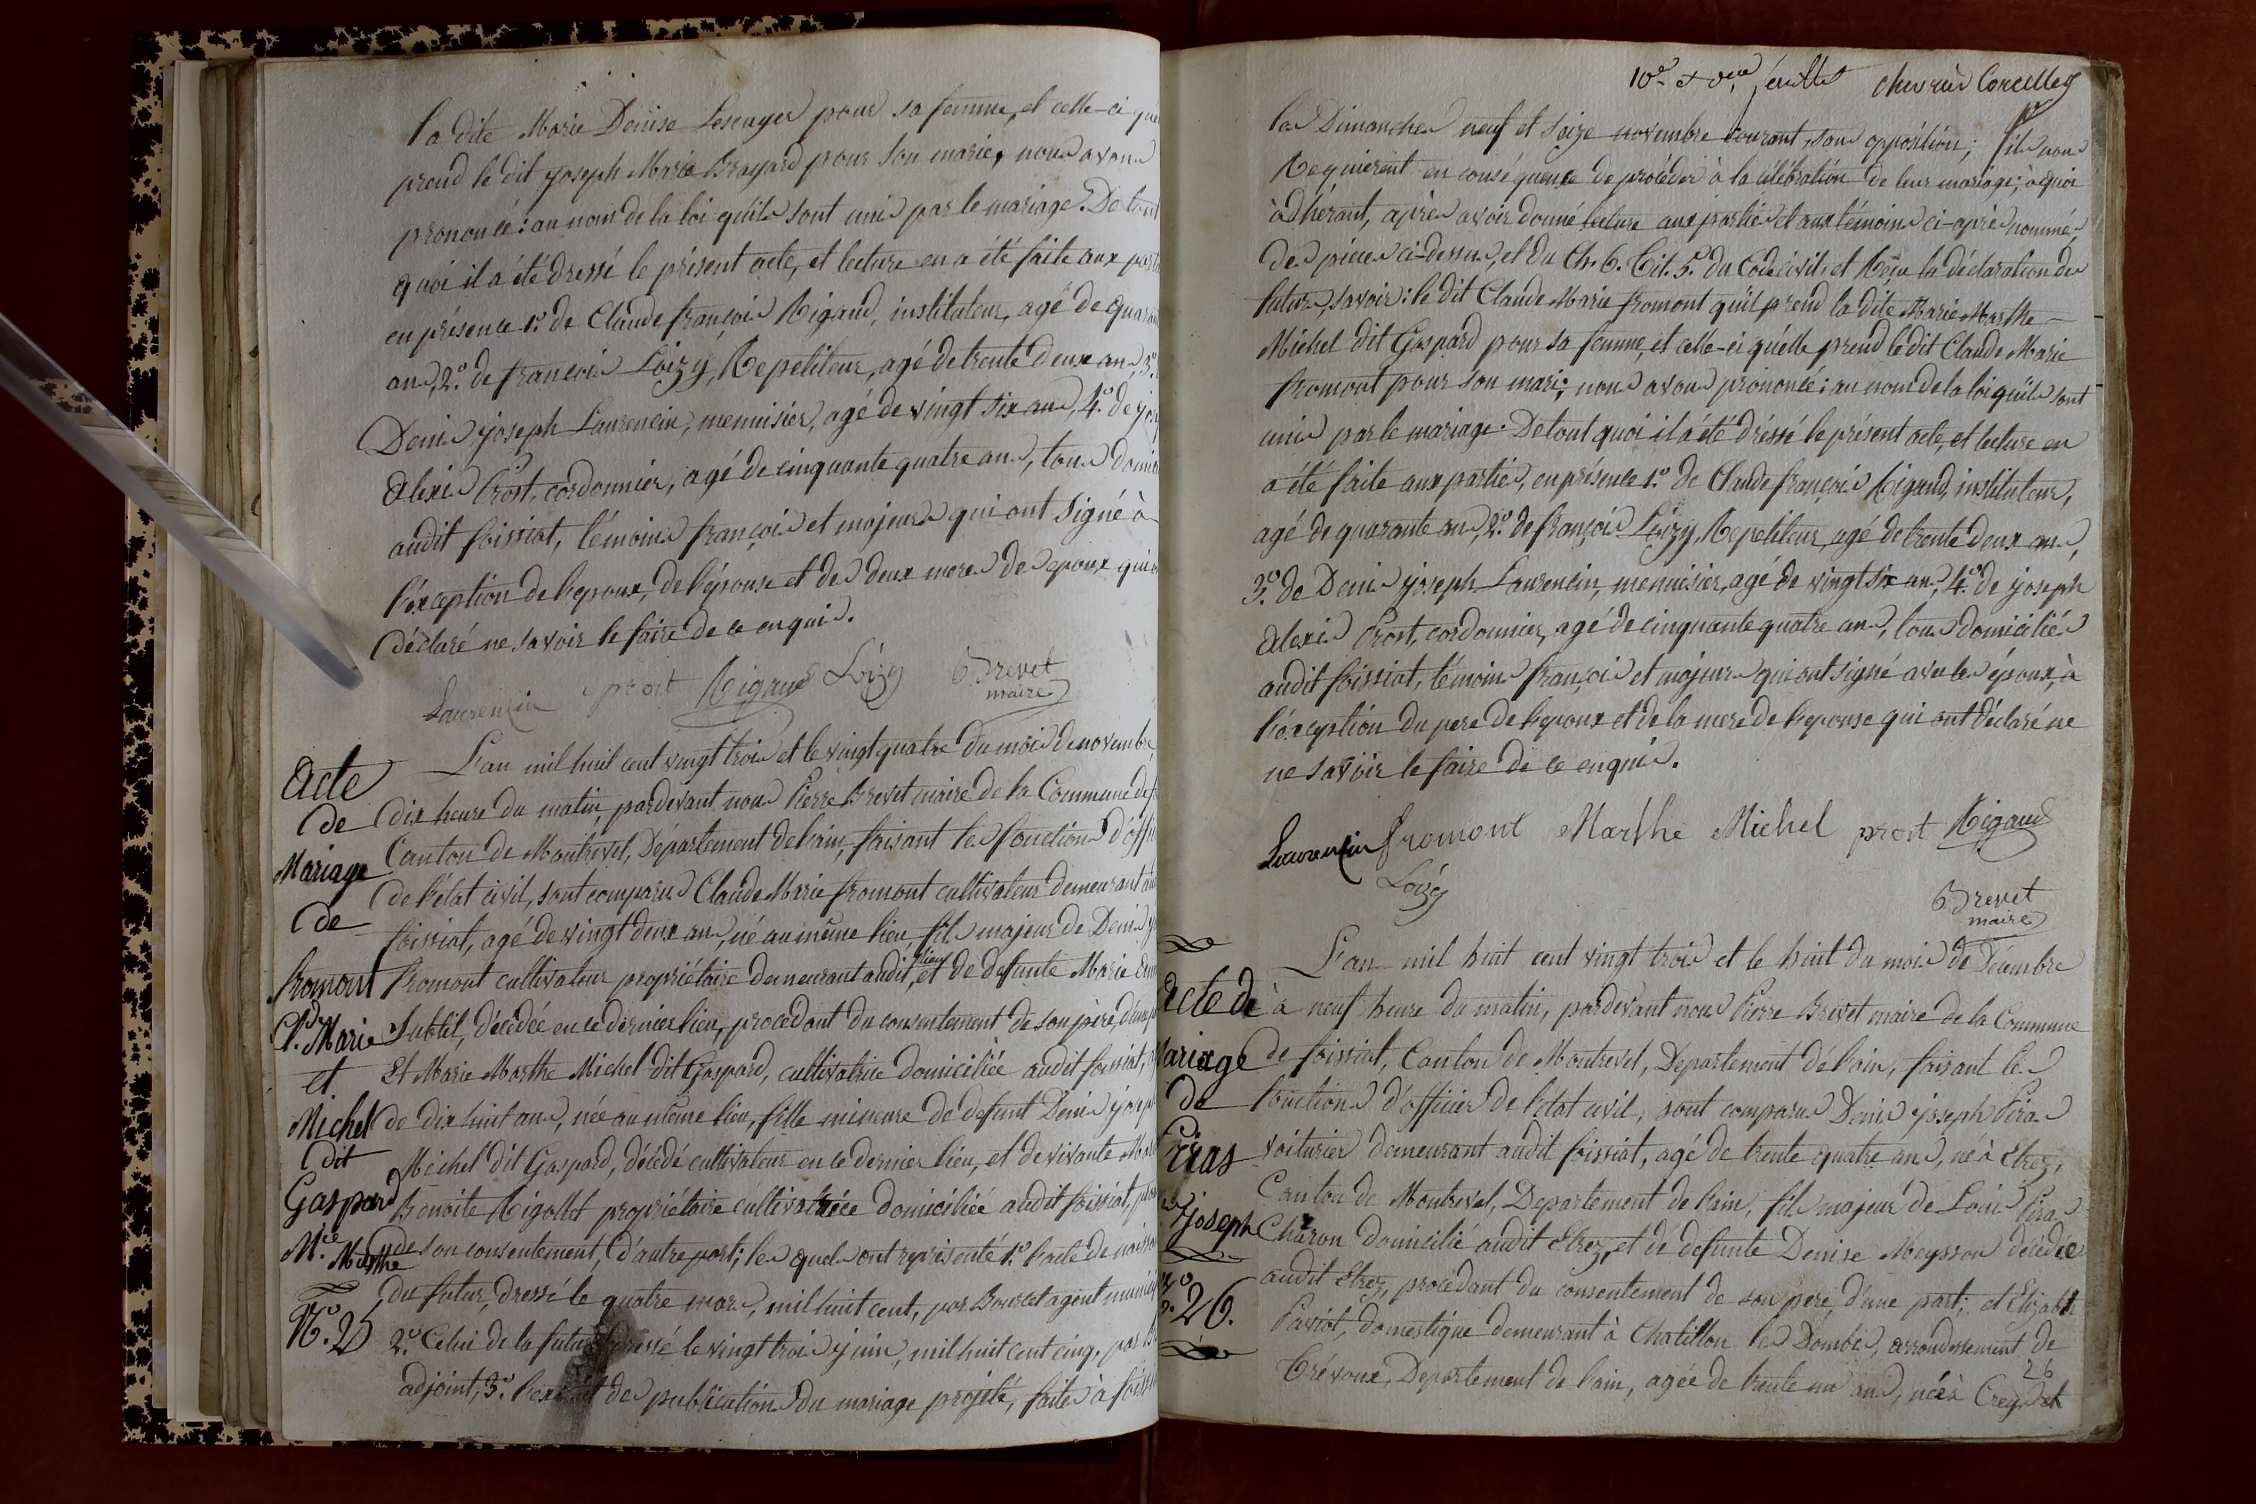 la dite Marie Denise Lescuyer pour sa femme, et celle-ci qu'e
prend le dit joseph Marie Brayard pour son marie, nous avons
prononcé : au nom de la loi qu'ils sont unis par le mariage. De tout
quoi il a été dressé le présent acte, et lecture en a été faite aux parti
en présence 1.º de Claude françois Rigaud, instituteur, agé de quaran
ans, 2.º de françois Loizy, Repetiteur, agé de trente deux ans, 3.º
Denis joseph Laurencin, menuisier, agé de vingt six ans, 4.º de jose
alexis Prost, cordonnier, agé de cinquante quatre ans, tous domici
audit foissiat, témoins françois et majeurs qui ont signé à
l'éxception de l'epoux, de l'épouse et des deux meres des epoux qui o
déclaré ne savoir le faire de ce enquis.
Laurencin prost Rigaud Loizy Brevet
maire
Acte
de
Mariage
de
fromont
Cl.de Marie
et
Michel
dit
Gaspard
M.ie Marthe
N.º 25
L'an mil huit cent vingt trois et le vingt quatre du mois de novembre
dix heures du matin, pardevant nous Pierre Brevet maire de la Commune de f
Canton de Montrevel, Département de l'ain, faisant les fonctions d'offi
de l'état civil, sont comparus Claude Marie fromont cultivateur demeurant au
foissiat, agé de vingt deux ans, né au même lieu, fils majeur de Denis
fromont cultivateur propriétaire demeurant audit lieu, et de defunte Marie
Subtil, décédée en ce dernier lieu, procedant du consentement de son père, d'une p
Et Marie Marthe Michel dit Gaspard, cultivatrice domiciliée audit foissiat,
de dix huit ans, née au même lieu, fille mineure de defunt Denis joseph
Michel dit Gaspard, décédé cultivateur en ce dernier lieu, et de vivante
Benoite Rigollet propriétaire cultivatrice domiciliée audit foissiat, pro
de son consentement, d'autre part; les quels ont représenté 1.º l'acte de naissa
du futur, dressé le quatre mars, mil huit cent, par Bourcet agent munici
2.º Celui de la future dressé le vingt trois juin, mil huit cent cinq, par
adjoint, 3.º l'extrait des publications du mariage projeté, faites à foissi
10.e et d.er feuillet chevrier Corcelley
les Dimanches neuf et seize novembre courant, sans opposition; ils nous
Requierent en conséquence de procéder à la célébration de leur mariage; à quoi
adhérant, après avoir donné lecture aux parties et aux témoins ci-après nommés,
des pièces ci-dessus, et du Ch. 6. Tit. 5. du Code civil, et Reçu la déclaration des
futurs, savoir : le dit Claude Marie fromont qu'il prend la dite Marie Marthe
Michel dit Gaspard pour sa femme, et celle-ci qu'elle prend le dit Claude Marie
fromont pour son mari; nous avons prononcé : au nom de la loi qu'ils sont
unis par le mariage. De tout quoi il a été dréssé le présent acte, et lecture en
a été faite aux parties, en présence 1.º de Claude françois Rigaud, instituteur,
agé de quarante ans, 2.º de françois Loizy, Repetiteur, agé de trente deux ans,
3.º de Denis joseph Laurencin, menuisier, agé de vingt six ans, 4.º de joseph
alexis Prost, cordonnier, agé de cinquante quatre ans, tous domiciliés
audit foissiat, témoins françois et majeurs qui ont signé avec les époux, à
l'éxception du pere de l'epoux et de la mere de l'epouse qui ont déclaré ne
ne savoir le faire de ce enquis.
Laurencin fromont Marthe Michel prost Rigaud
Loizy
Brevet
maire
acte de
Mariage
de
Péras
joseph
N.º 26.
L'an mil huit cent vingt trois et le huit du mois de Décembre
à neuf heures du matin, pardevant nous Pierre Brevet maire de la Commune
de foissiat, Canton de Montrevel, Departement de l'ain, faisant les
fonctions d'officier de l'état civil, sont comparus Denis joseph Péras
voiturier demeurant audit foissiat, agé de trente quatre ans, né à Etrez,
Canton de Montrevel, Departement de l'ain, fils majeur de Louis Péras
Charon domicilié audit Etrez, et de defunte Denise Meysson décédée
audit Etrez, procédant du consentement de son pere, d'une part; et Elizabt
Paviot, domestique demeurant à Chatillon les Dombes, arrondissement de
Trévoux, Departement de l'ain, agée de trente un ans, née à
26